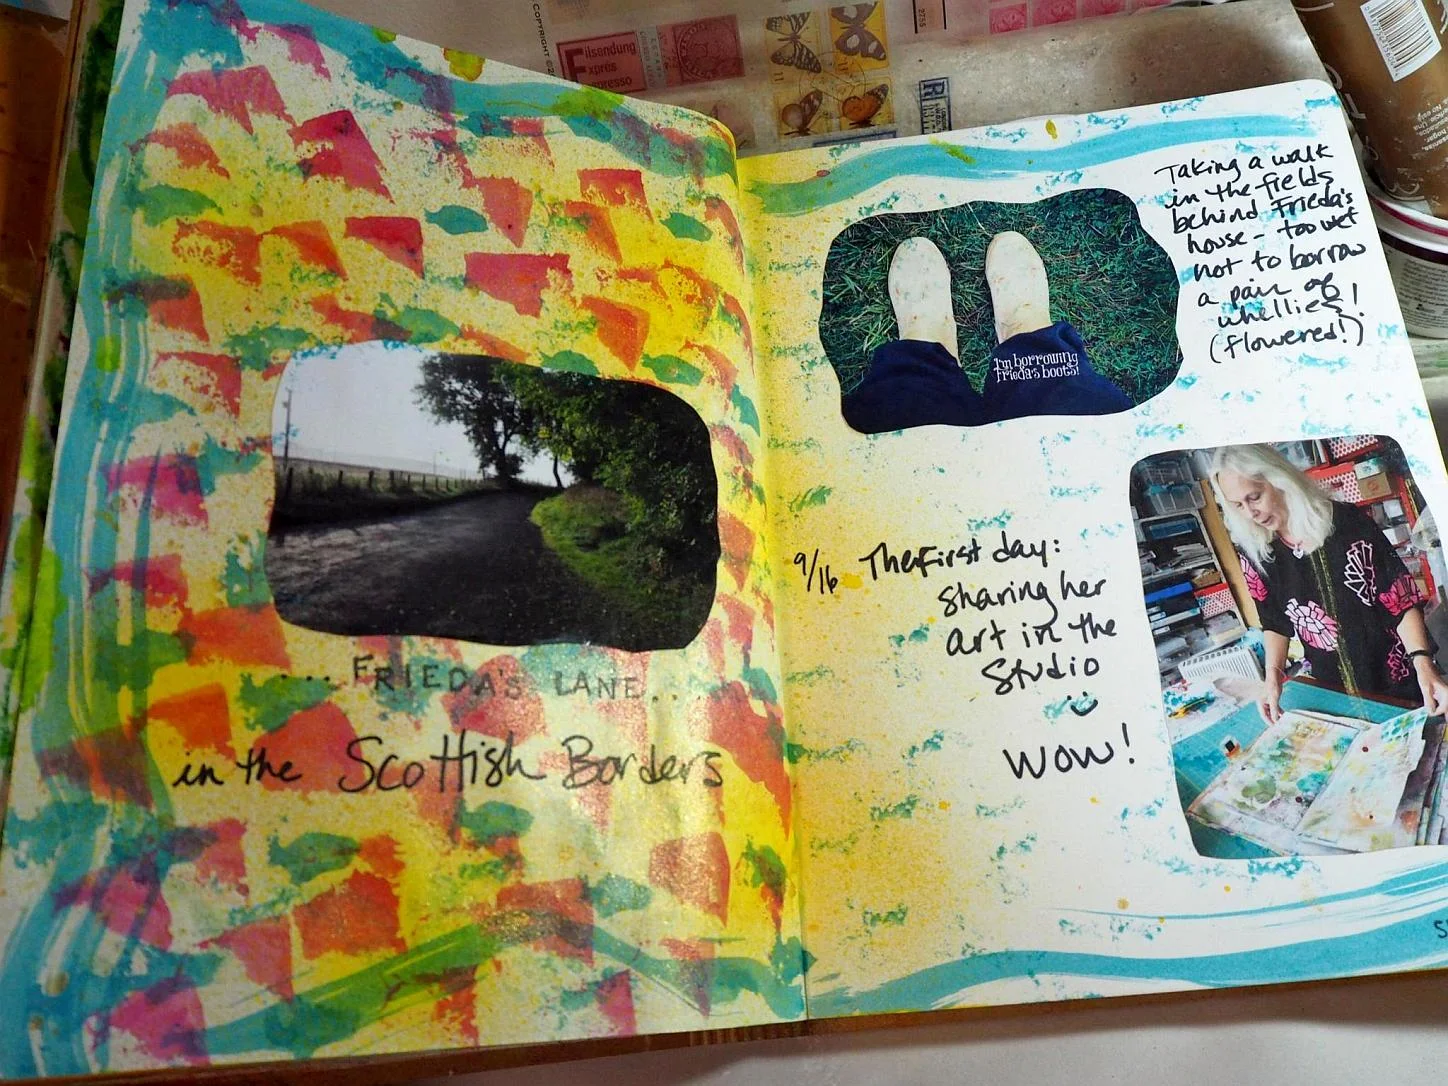 COPYRIGHT
Eilsendung
Expres
Espresso
2755
R
... FRIEDA'S LANE...
in the Scottish Borders
Taking a walk
in the fields
behind Frieda's
house - too wet
not to borrow
a pair of
whellies!
(flowered!)
I'm borrowing
Frieda's boots!
9/16 The first day:
sharing her
art in the
studio
WOW!